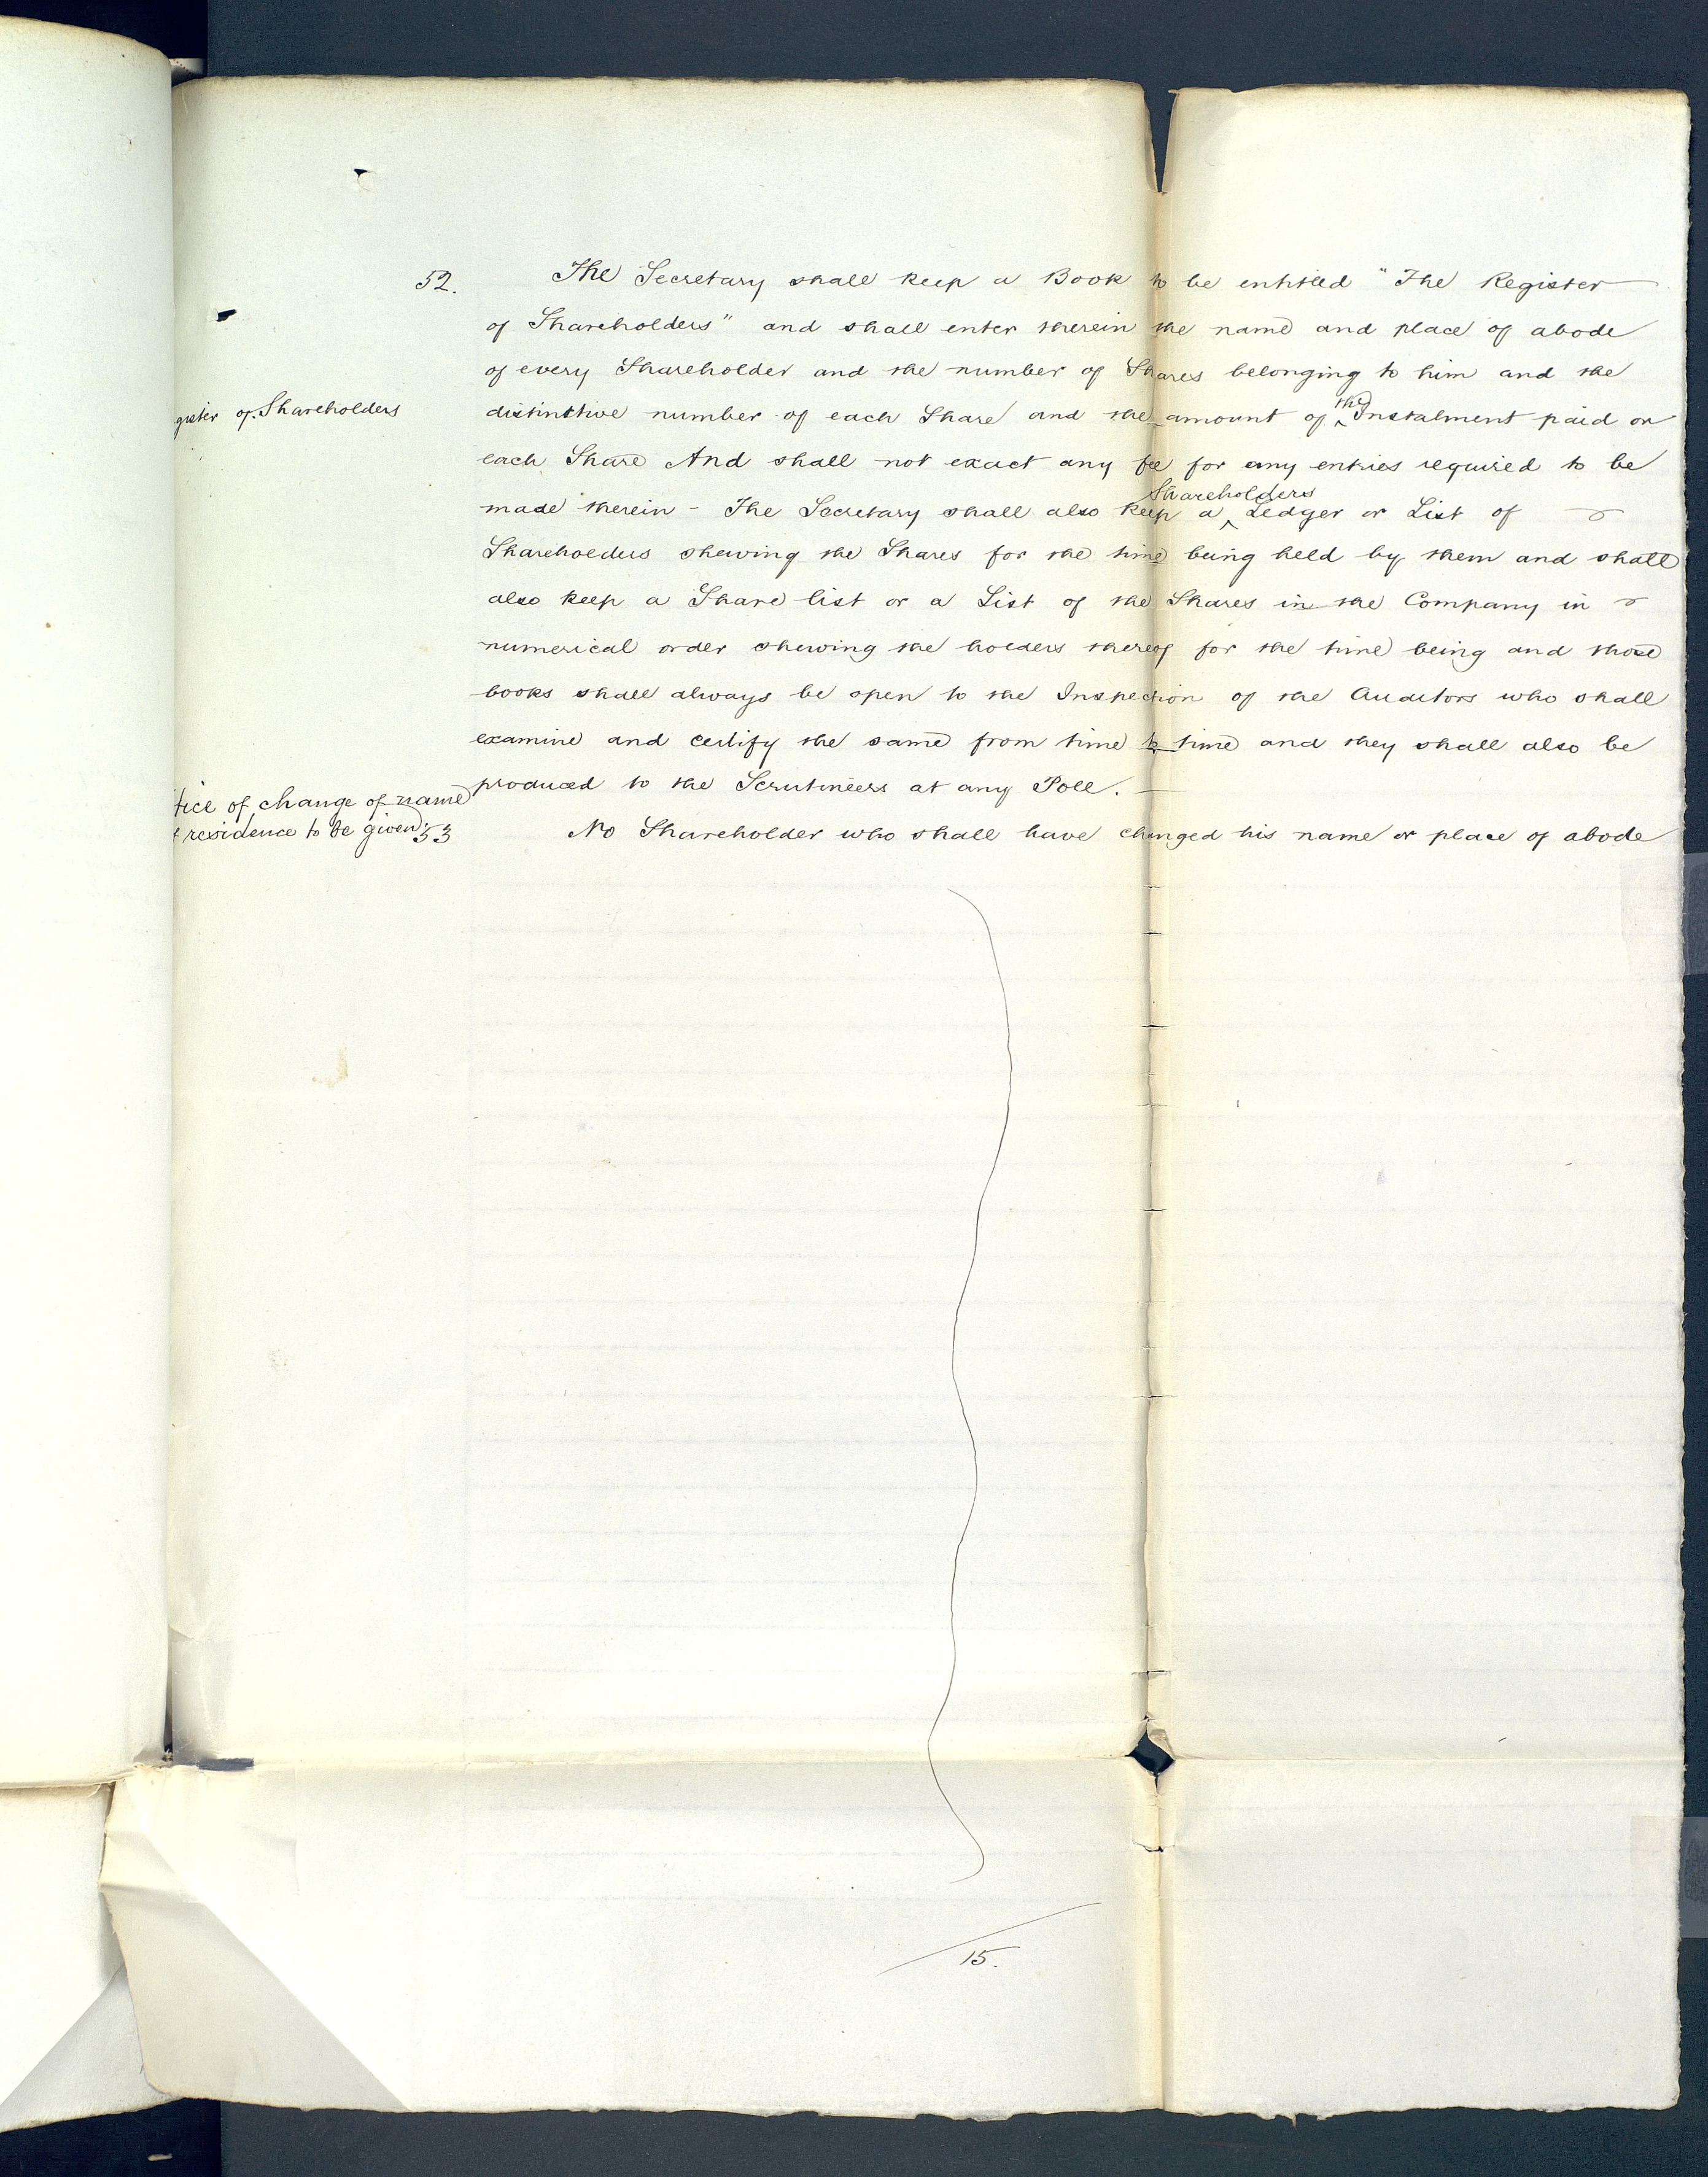 52. The Secretary shall keep a Book to be entitled "The Register
of Shareholders" and shall enter therein the name and place of abode
of every Shareholder and the number of Shares belonging to him and the
gister of Shareholders
distinctive number of each Share and the amount of the Instalment paid on
each Share And shall not exact any fee for any entries required to be
made therein - The Secretary shall also keep a Shareholders Ledger or List of
Shareholders shewing the Shares for the time being held by them and shall
also keep a Share list or a List of the Shares in the Company in
numerical order shewing the holders thereof for the time being and those
books shall always be open to the Inspection of the Auditors who shall
examine and certify the same from time to time and they shall also be
produced to the Scrutineers at any Poll.
tice of change of name
residence to be given
53 No Shareholder who shall have changed his name or place of abode
15.